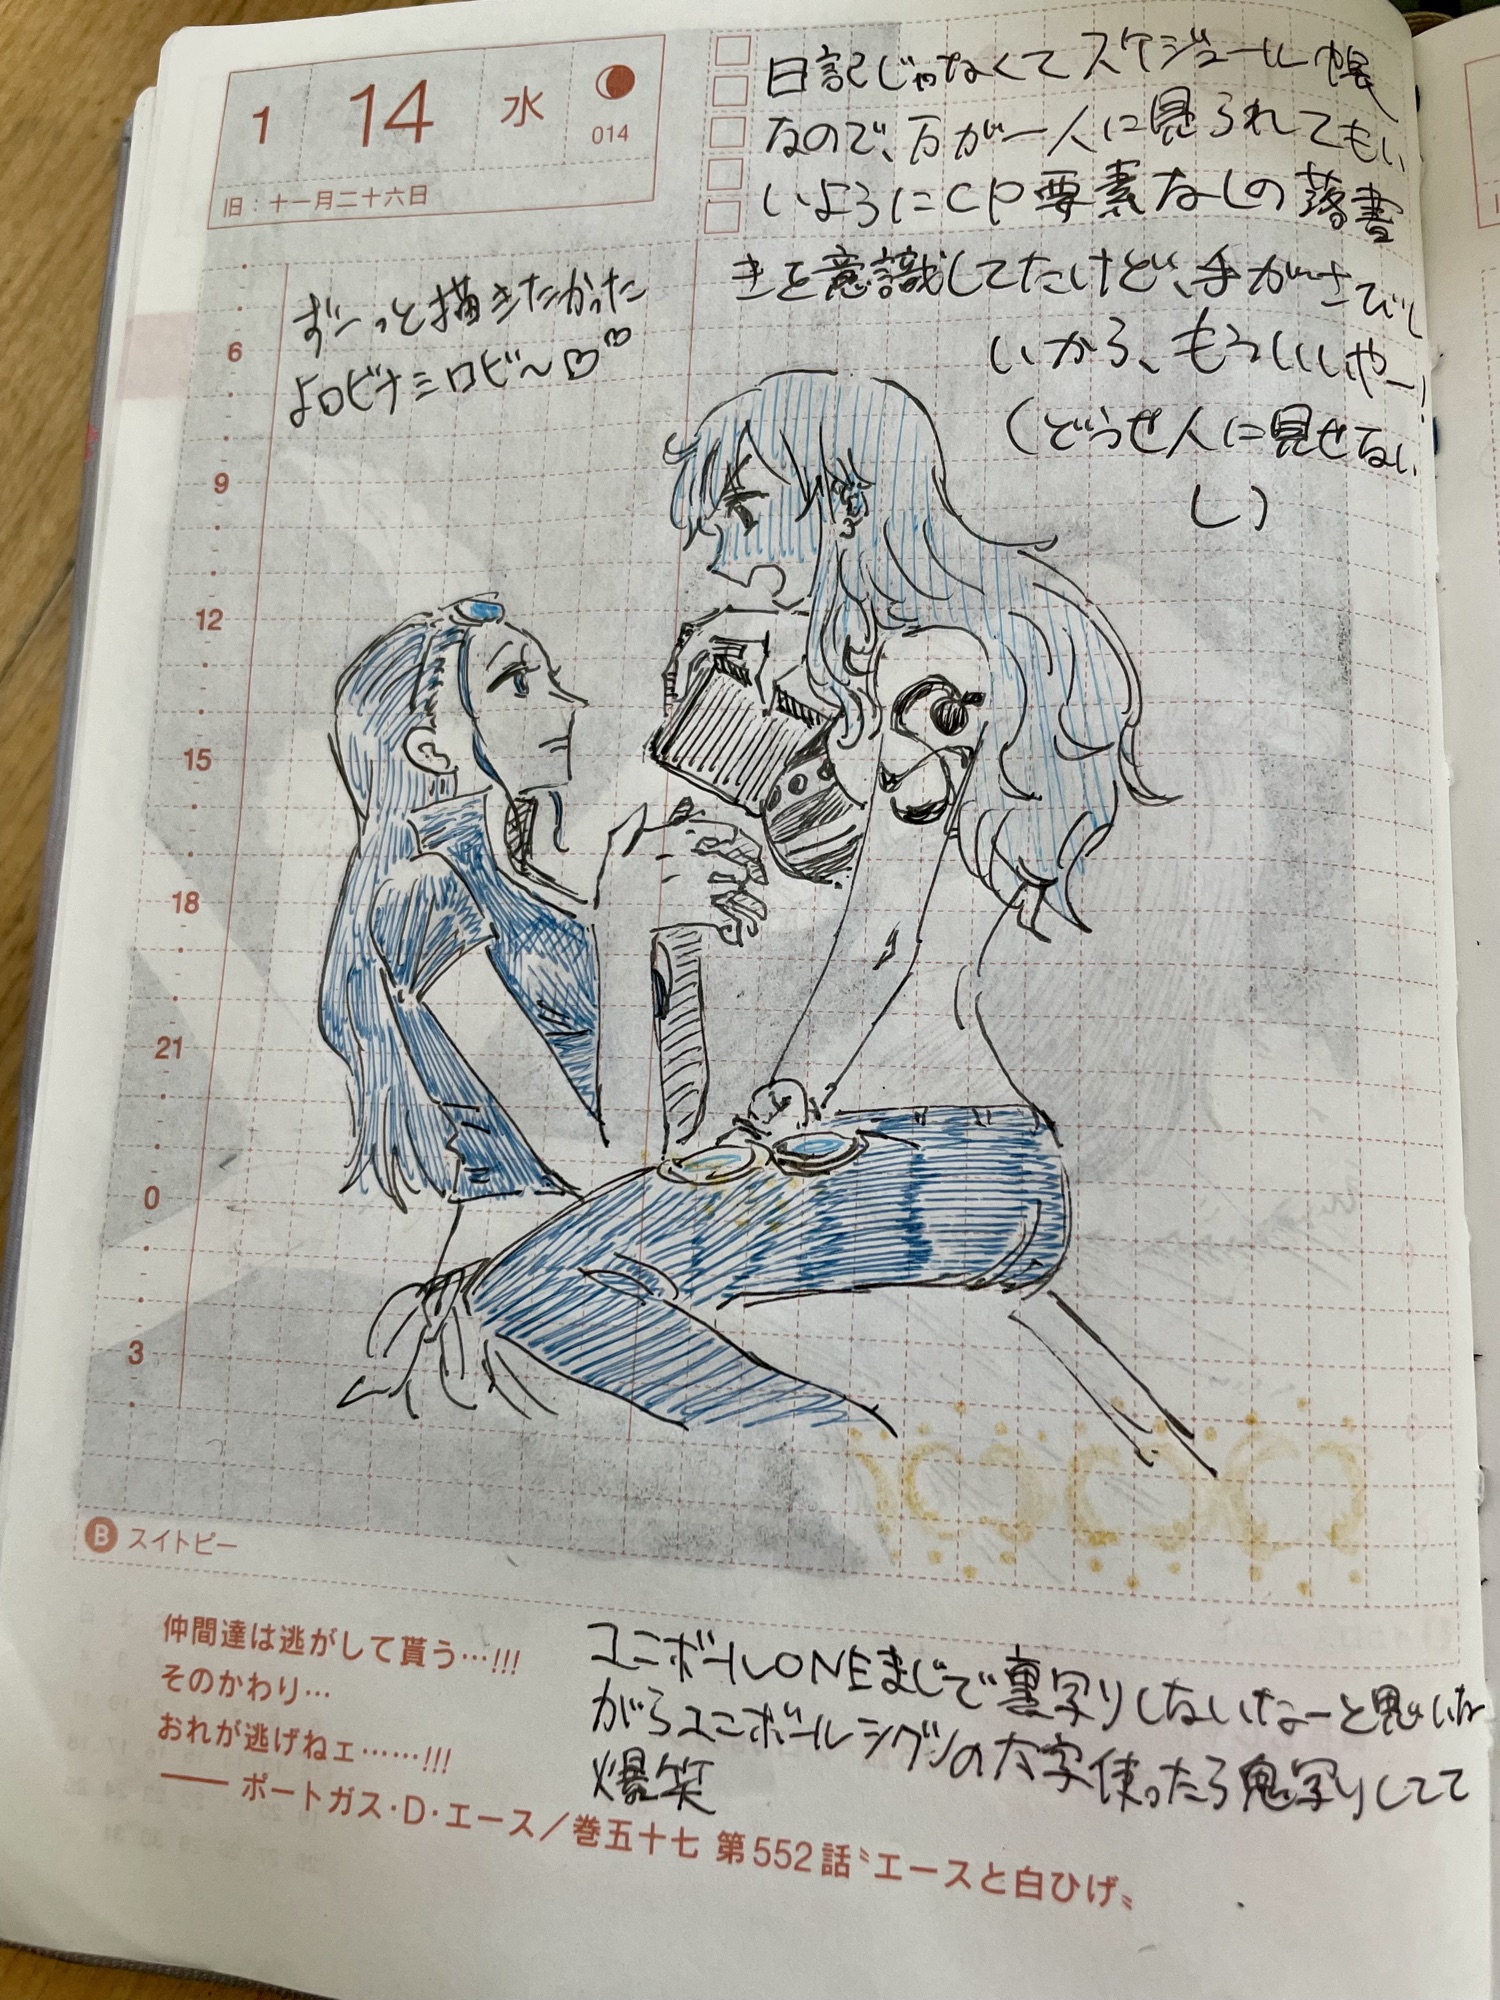 1 14 水
014
旧：十一月二十六日
日記じゃなくてスケジュール帳
なので、万が一人に見られてもい
いようにCP要素なしの落書
きを意識してたけど、手がさびし
いから、もういいやー!
(どうせ人に見せない
し)
ずーっと描きたかった
よロビナミロビ～♡♡
6
9
12
15
18
21
0
3
B スイトピー
仲間達は逃がして貰う…!!!
そのかわり…
おれが逃げねェ……!!!
── ポートガス・D・エース／巻五十七 第552話〝エースと白ひげ〟
ユニボールONEまじで裏写りしないなーと思いな
がらユニボールシグノの太字使ったら鬼写りしてて
爆笑